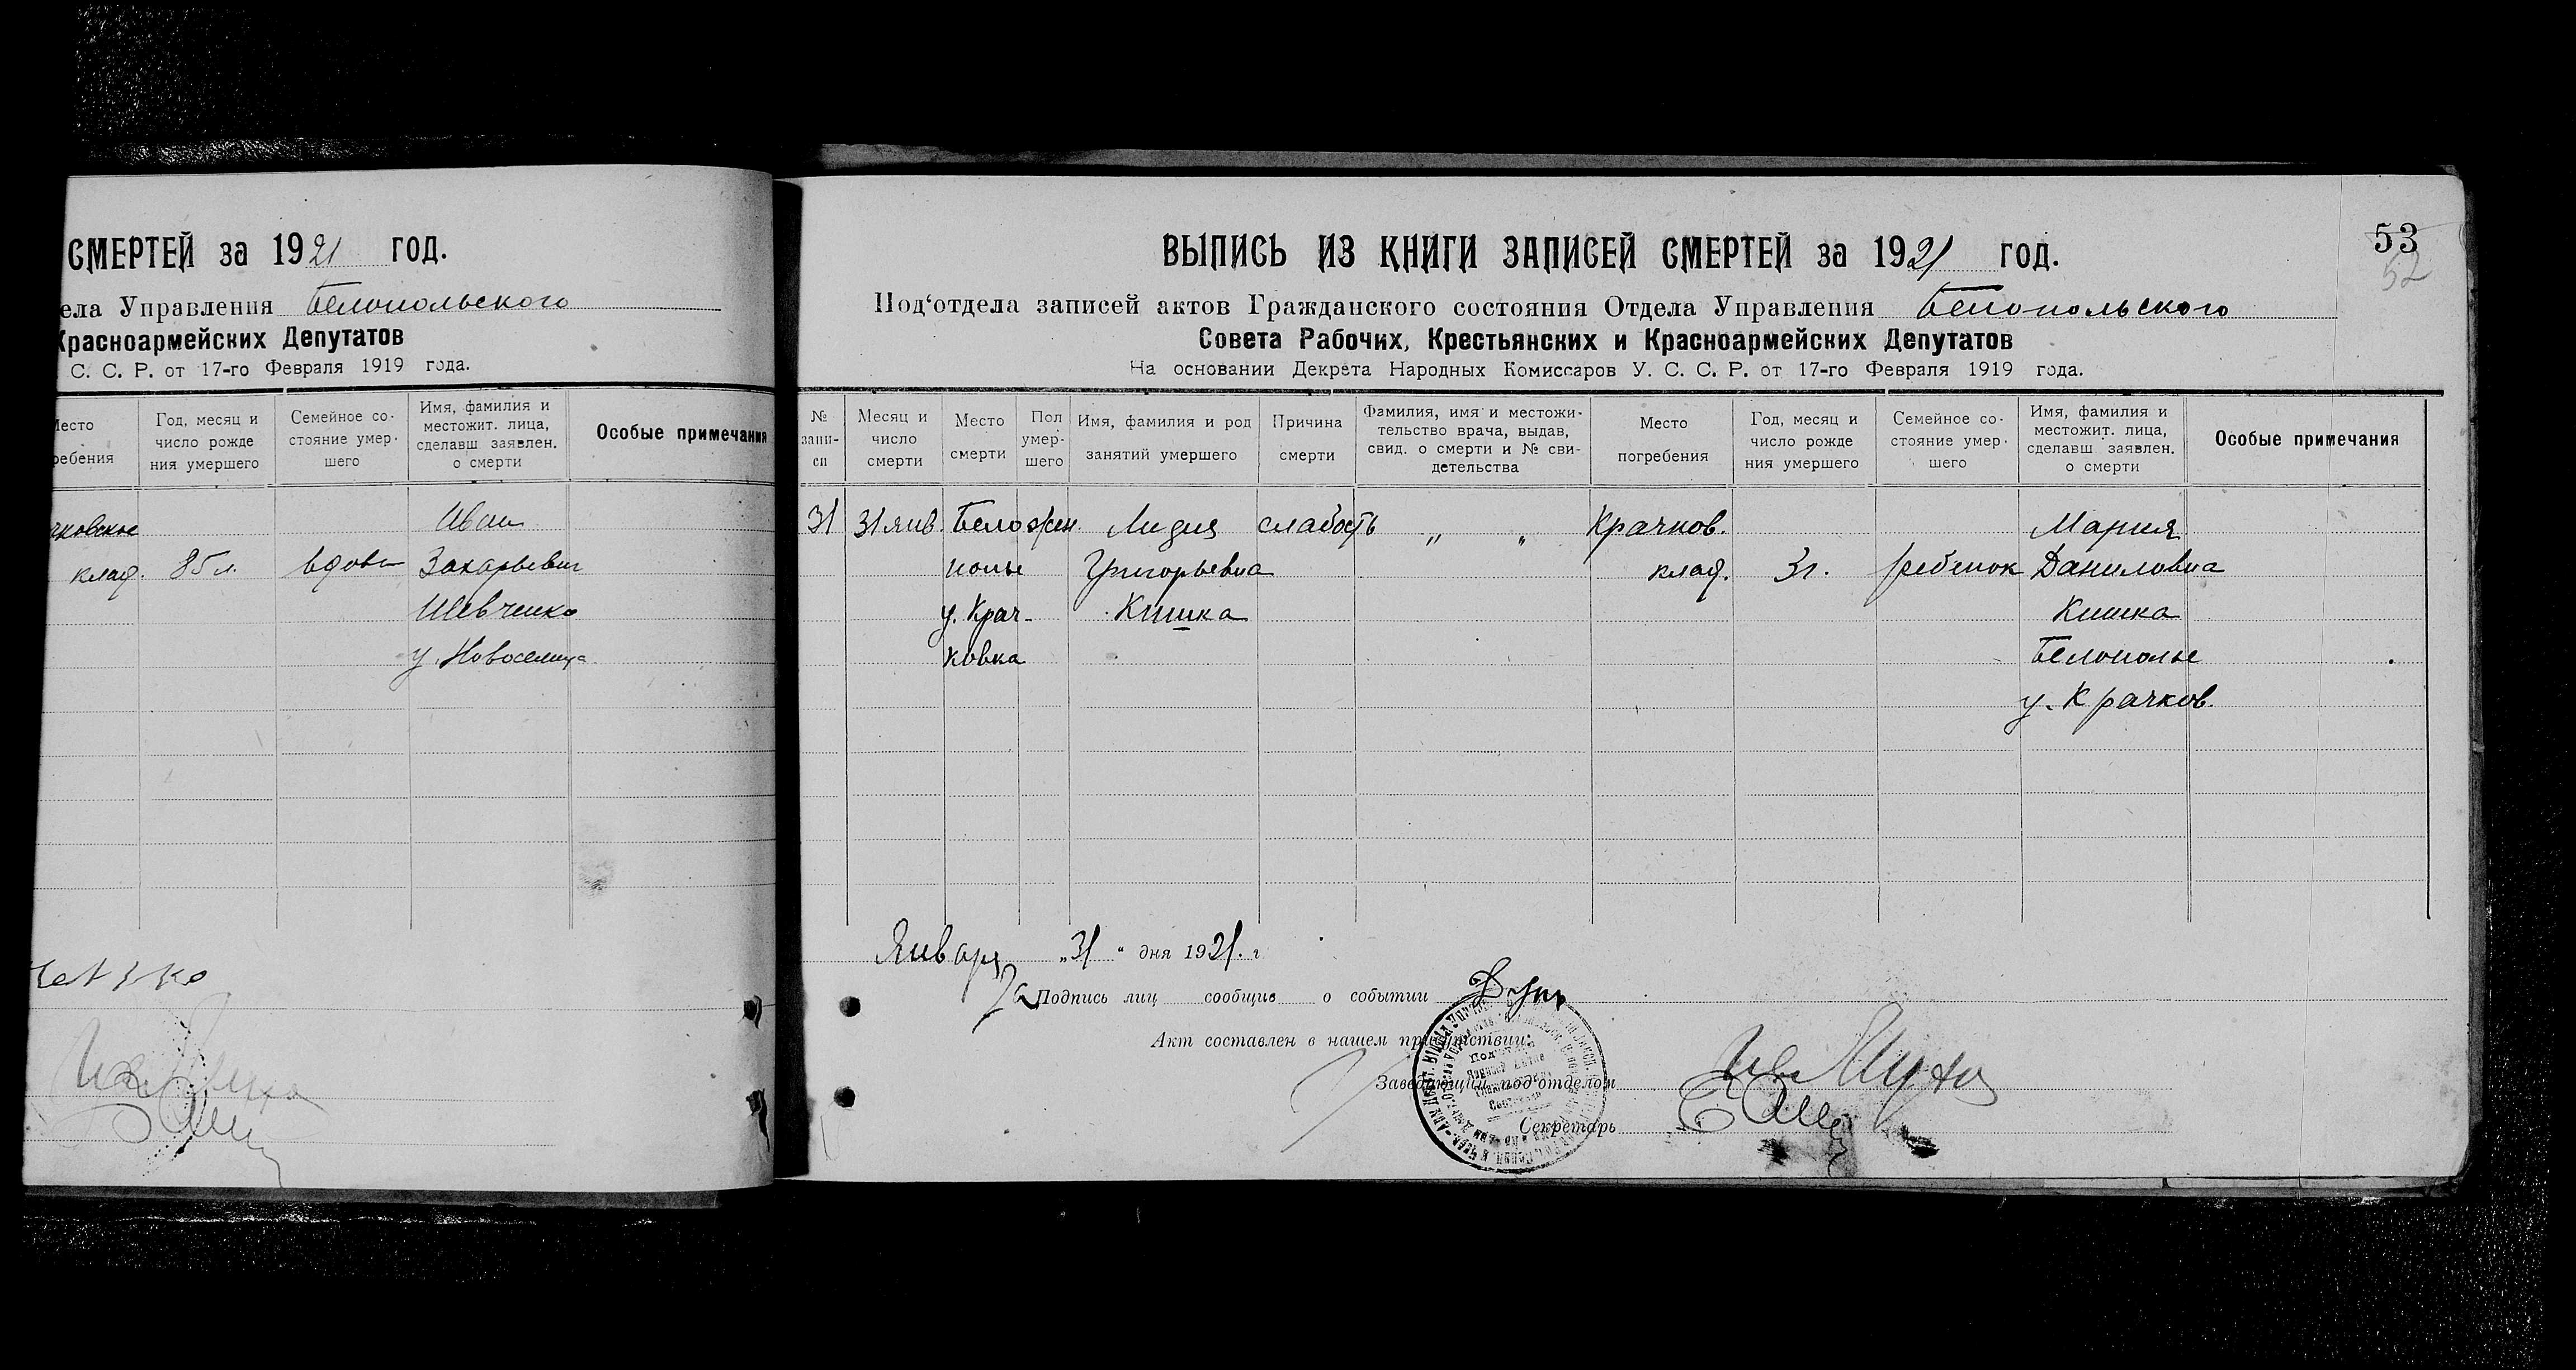 СМЕРТЕЙ за 1921 ГОД.
ела Управления Белопольского
Красноармейских Депутатов
С. С. Р. от 17-го Февраля 1919 года.
Место
ребения
Год, месяц и
число рожде
ния умершего
Семейное со-
стояние умер-
шего
Имя, фамилия и
местожит. лица,
сделавш заявлен.
о смерти
Особые примечания
чковское
клад.
85 л.
вдова
Иван
Захарьевич
Шевченко
у. Новоселица
ВЫПИСЬ ИЗ КНИГИ ЗАПИСЕЙ СМЕРТЕЙ за 1921 ГОД.
53
52
Под‘отдела записей актов Гражданского состояния Отдела Управления Белопольского
Совета Рабочих, Крестьянских и Красноармейских Депутатов
На основании Декрета Народных Комиссаров У. С. С. Р. от 17-го Февраля 1919 года.
№
запи-
си
Месяц и
число
смерти
Место
смерти
Пол
умер-
шего
Имя, фамилия и род
занятий умершего
Причина
смерти
Фамилия, имя и местожи-
тельство врача, выдав,
свид. о смерти и № сви-
детельства
Место
погребения
Год, месяц и
число рожде
ния умершего
Семейное со-
стояние умер-
шего
Имя, фамилия и
местожит. лица,
сделавш заявлен.
о смерти
Особые примечания
31
31 янв.
Бело
полье
у. Крач-
ковка
жен.
Лидия
Григорьевна
Кишка
слабость
„ „
Крачков.
клад.
3 г.
ребенок
Мария
Даниловна
Кишка
Белополье
у. Крачков.
Января „31“ дня 1921. г
За Подпись лиц сообщив о событии
Акт составлен в нашем присутствии:
Заведующий под‘отделом
Секретарь